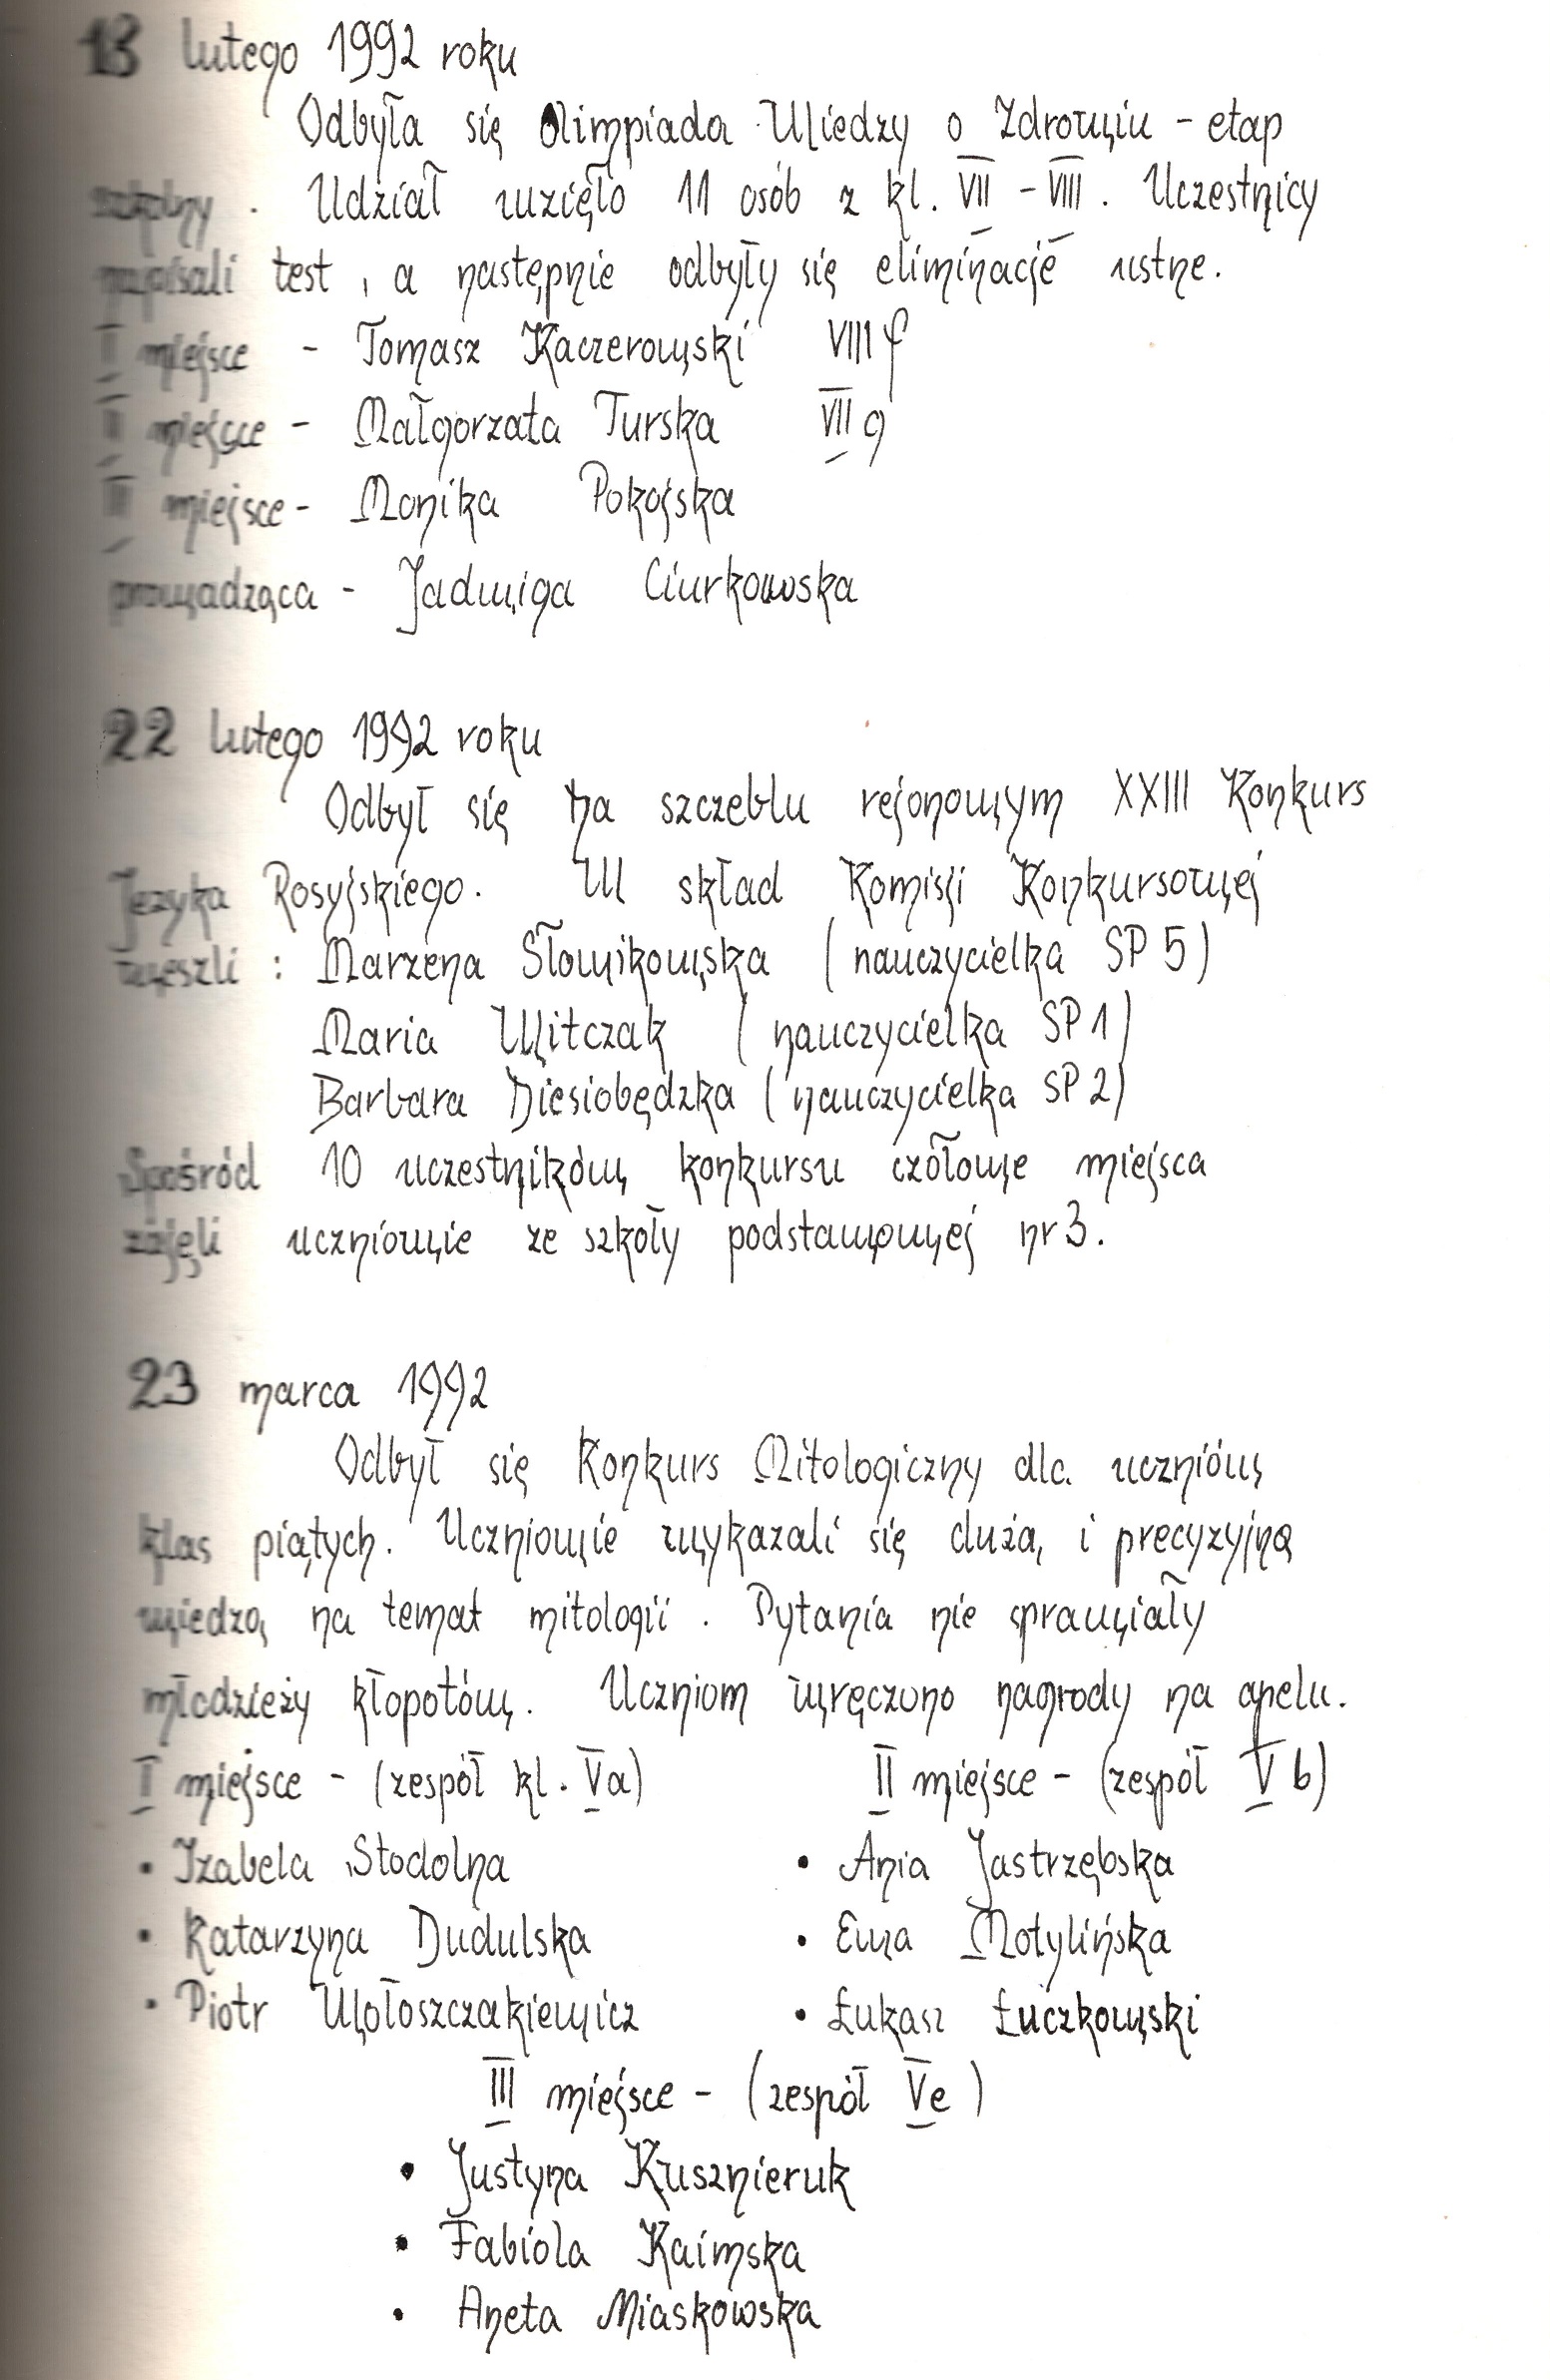 13 lutego 1992 roku
Odbyła się Olimpiada Wiedzy o Zdrowiu - etap
szkolny. Udział wzięło 11 osób z kl. VII - VIII. Uczestnicy
napisali test, a następnie odbyły się eliminacje ustne.
I miejsce - Tomasz Kaczerowski VIII f
II miejsce - Małgorzata Turska VII g
III miejsce - Monika Pokojska
prowadząca - Jadwiga Ciurkowska
22 lutego 1992 roku
Odbył się na szczeblu rejonowym XXIII Konkurs
Języka Rosyjskiego. W skład Komisji Konkursowej
weszli : Marzena Słowikowska (nauczycielka SP 5)
Maria Witczak (nauczycielka SP 1)
Barbara Niesiobędzka (nauczycielka SP 2)
Spośród 10 uczestników konkursu czołowe miejsca
zajęli uczniowie ze szkoły podstawowej nr 3.
23 marca 1992
Odbył się Konkurs Mitologiczny dla uczniów
klas piątych. Uczniowie wykazali się dużą i precyzyjną
wiedzą na temat mitologii. Pytania nie sprawiały
młodzieży kłopotów. Uczniom wręczono nagrody na apelu.
I miejsce - (zespół kl. Va) II miejsce - (zespół V b)
• Izabela Stodolna • Ania Jastrzębska
• Katarzyna Dudulska • Ewa Motylińska
• Piotr Wołoszczakiewicz • Łukasz Łuczkowski
III miejsce - (zespół Ve)
• Justyna Kusznieruk
• Fabiola Kaimska
• Aneta Miaskowska